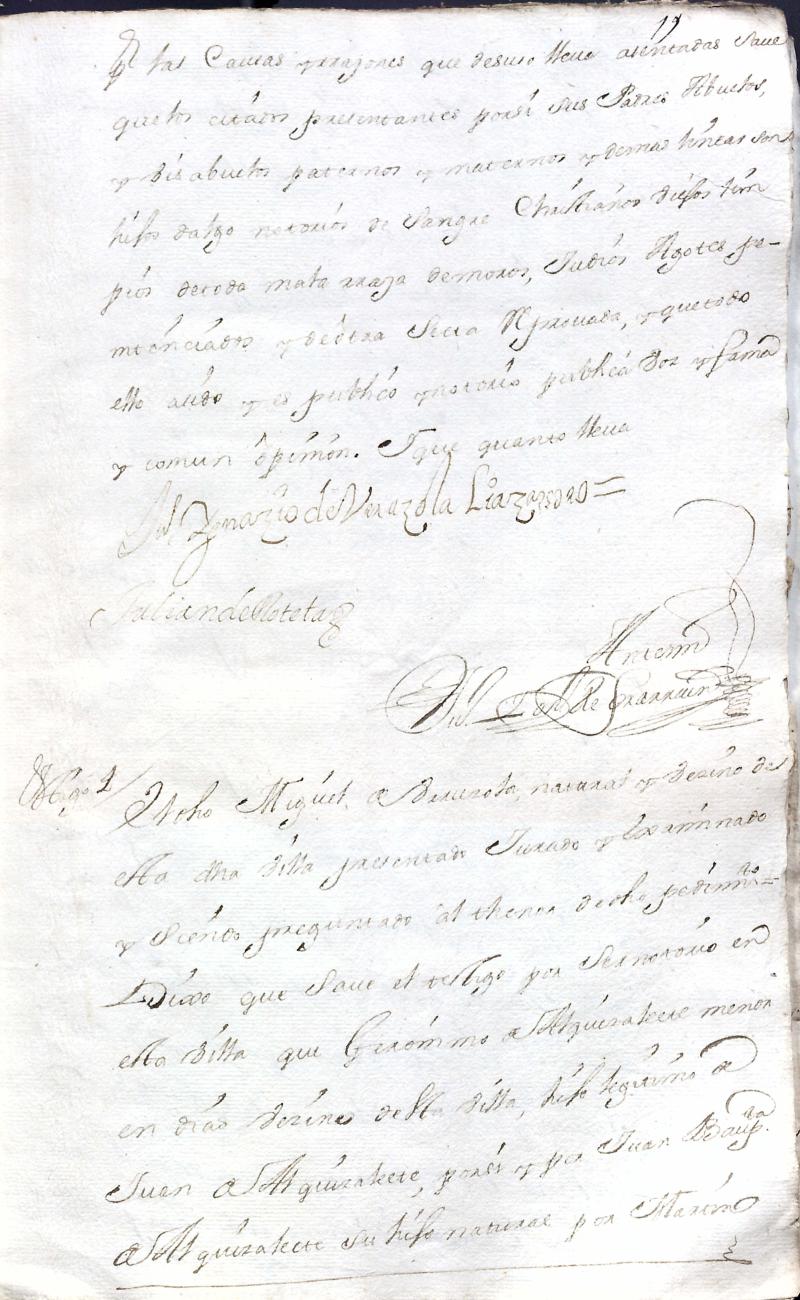 11
Y las Causas y rrazones que desuso lleva asentadas Save
que los citados presentantes por si sus Padres Abuelos,
y bis abuelos paternos y maternos y demas lineas son
hijos dalgo notorios de Sangre Christianos viejos lim
pios de toda mala rraza de moros, Judios Agotes pe-
nitenciados y de otra Secta Reprovada, y que todo
ello a sido y es publico y notorio publica voz y fama
y comun opinion. Y que quanto lleva
Ignazio de Verazola Lizazoro =
Julian de Roteta
Antemi
de Yrarrain
Testigo 1
El dho Miguel de Berazola, natural y vezino de
esta dha villa presentado Jurado y Examinado
y siendo preguntado al thenor de dho pedimto =
Dixo que Save el testigo por ser notorio en
esta villa que Geronimo de Alquizalete menor
en dias vezino desta villa, hijo legitimo de
Juan de Alquizalete, por si y por Juan Baupta
de Alquizalete su hijo natural por Martin